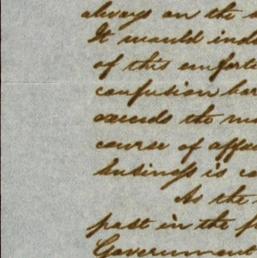 always on the
It would ind
of this unforte
confusion har
exceeds the
course of affai
business is co
As the
past in the f
Government